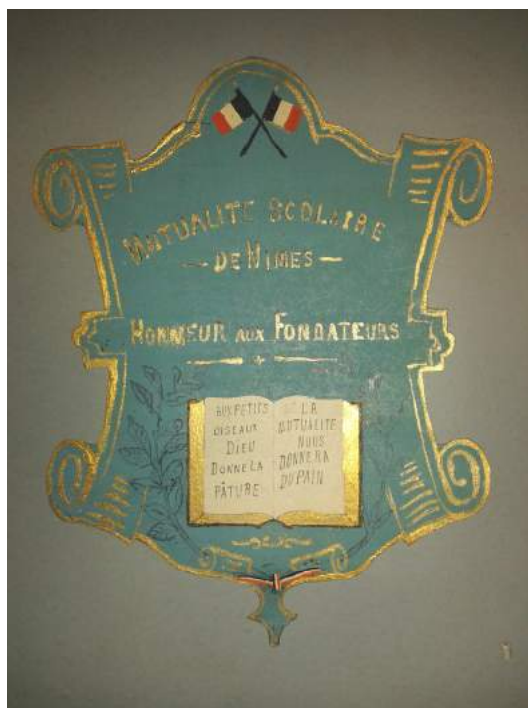 MUTUALITE SCOLAIRE
- DE NIMES -
HONNEUR AUX FONDATEURS
AUX PETITS
OISEAUX
DIEU
DONNE LA
PÂTURE
LA
MUTUALITE
NOUS
DONNERA
DU PAIN